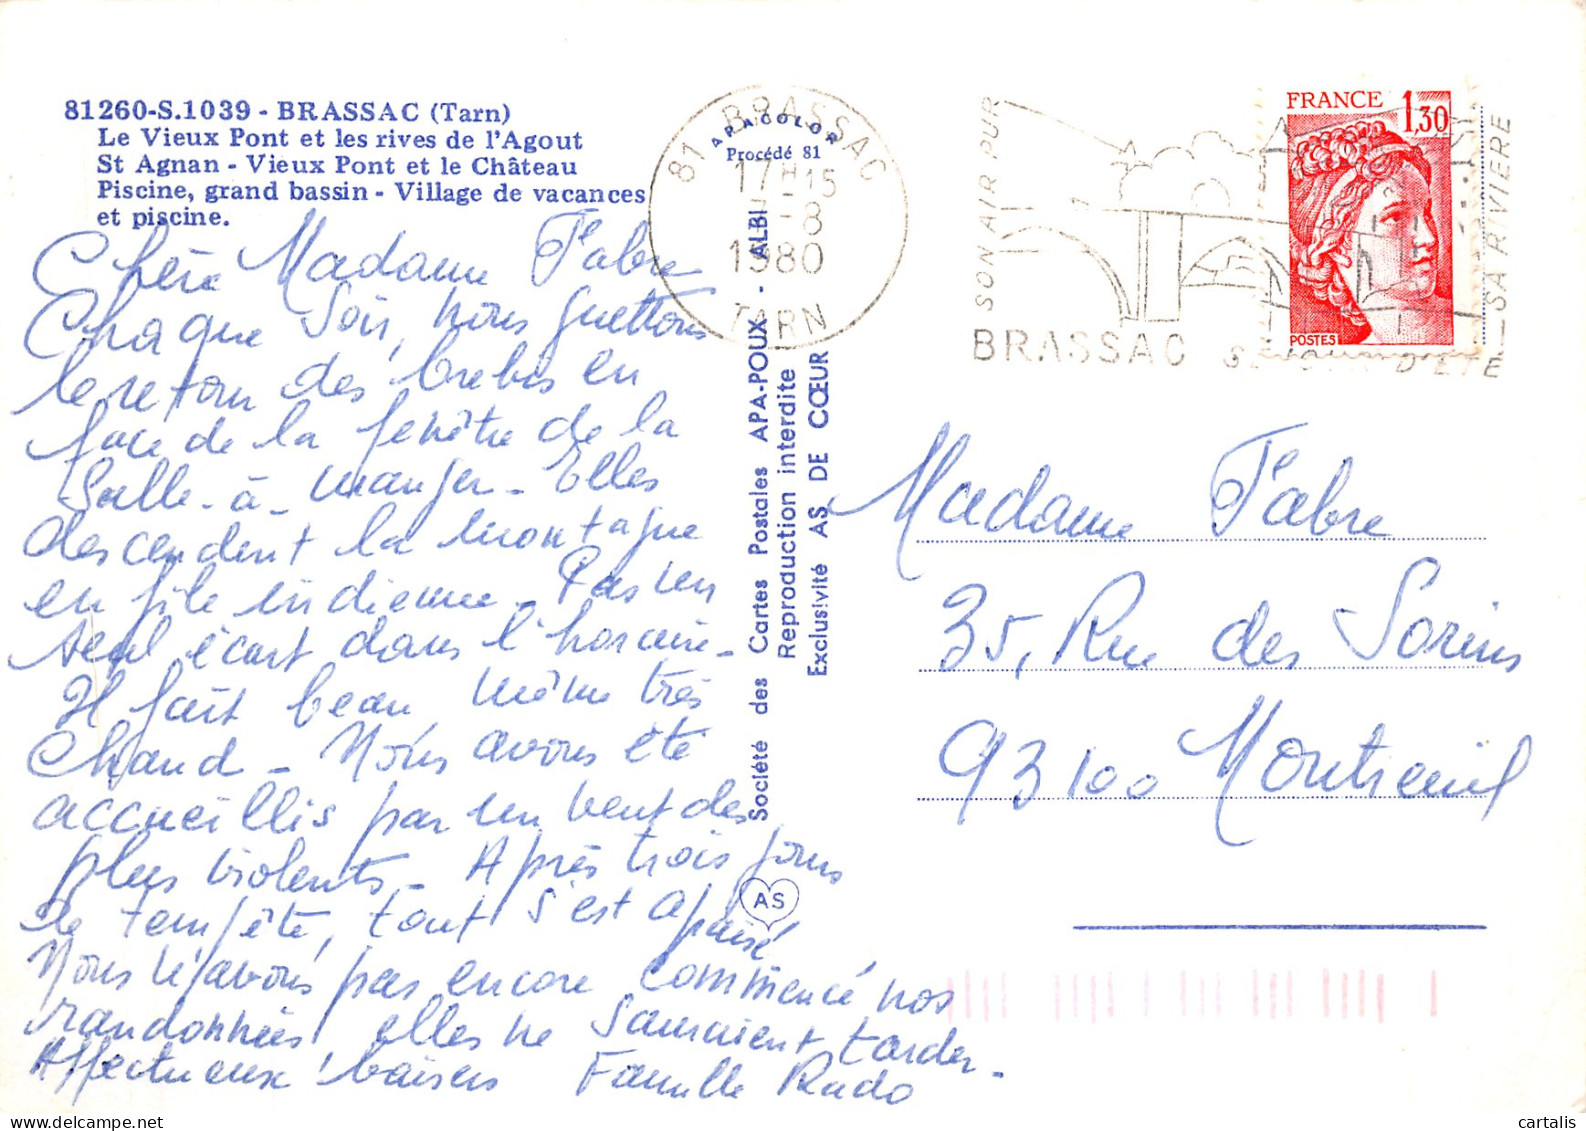 81260-S.1039 - BRASSAC (Tarn)
Le Vieux Pont et les rives de l'Agout
St Agnan - Vieux Pont et le Château
Piscine, grand bassin - Village de vacances
et piscine.
Chère Madame Fabre
Chaque soir, nous guettons
le retour des brebis en
face de la fenêtre de la
Salle-à-manger - Elles
descendent la montagne
en file indienne - Pas un
seul écart dans l'horaire -
Il fait beau, même très
chaud - Nous avons été
accueillis par un vent des
plus violents - Après trois jours
de tempête, tout s'est apaisé
Nous n'avons pas encore commencé nos
randonnées, elles ne sauraient tarder -
Affectueux baisers Famille Rado
81 BRASSAC
17H15
-8
1980
TARN
APACOLOR
Procédé 81
Société des Cartes Postales APA-POUX - ALBI
Reproduction interdite
Exclusivité AS DE CŒUR
AS
SON AIR PUR
SA RIVIERE
BRASSAC D'ETE
FRANCE 1,30
POSTES
Madame Fabre
35, Rue des Sorins
93100 Montreuil
cartalis